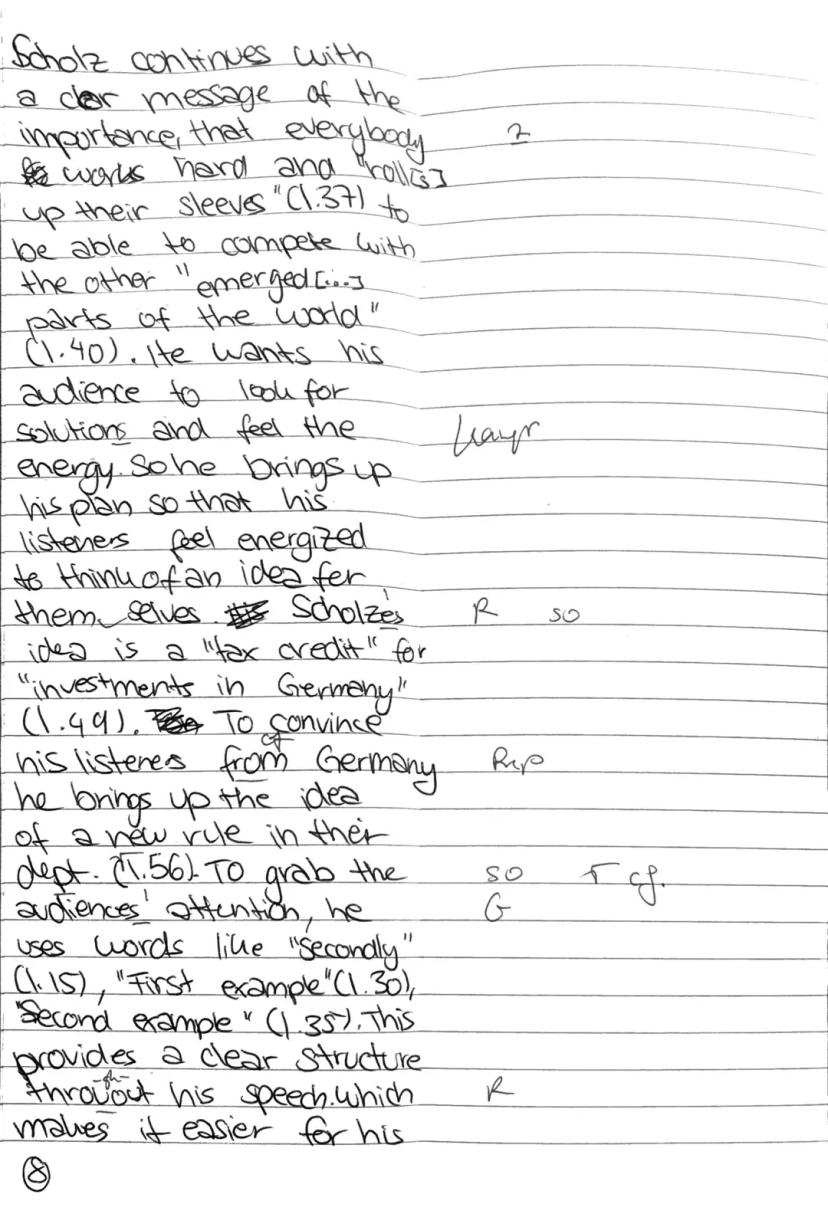 Scholz continues with
a clear message of the
importance, that everybody 2
works hard and "roll[s]
up their sleeves" (l.37) to
be able to compete with
the other "emerged[...]
parts of the world"
(l.40). He wants his
audience to look for
solutions and feel the
energy. So he brings up
his plan so that his
listeners feel energized
to think of an idea for
them selves. Scholze's R so
idea is a "tax credit" for
"investments in Germany"
(l.49). To convince
his listeners from Germany
he brings up the idea
of a new rule in their
dept. (l.56). To grab the so T cf.
audiences' attention, he G
uses words like "Secondly"
(l.15), "First example" (l.30),
"Second example" (l.35). This
provides a clear structure
throuout his speech. which R
gh
makes it easier for his
8